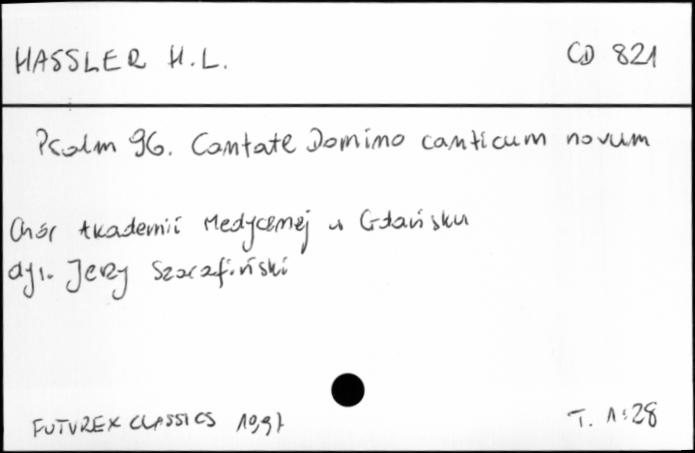 HASSLER H.L.
CD 821
Psalm 96. Cantate Domino canticum novum
Chór Akademii Medycznej w Gdańsku
dyr. Jerzy Szarafiński
FUTUREX CLASSICS 1997
T. 1:28